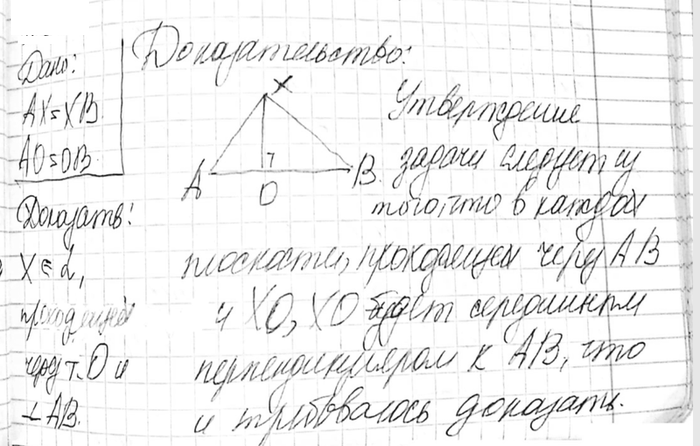 Дано:
AX=XB.
AO=OB.
Доказать:
X ∈ α,
проходящей
через т. O и
⊥ AB.
Доказательство:
X
A
O
B
Утверждение
задачи следует из
того, что в каждой
плоскости, проходящей через AB
и XO, XO будет серединным
перпендикуляром к AB, что
и требовалось доказать.